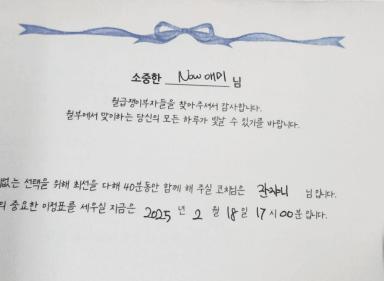 소중한 Now에미 님
월급쟁이부자들을 찾아주셔서 감사합니다.
월부에서 맞이하는 당신의 모든 하루가 빛날 수 있기를 바랍니다.
없는 선택을 위해 최선을 다해 40분동안 함께 해 주실 코치님은 님입니다.
의 중요한 이정표를 세우실 지금은 2025 년 2 월 18 일 17 시 00 분 입니다.